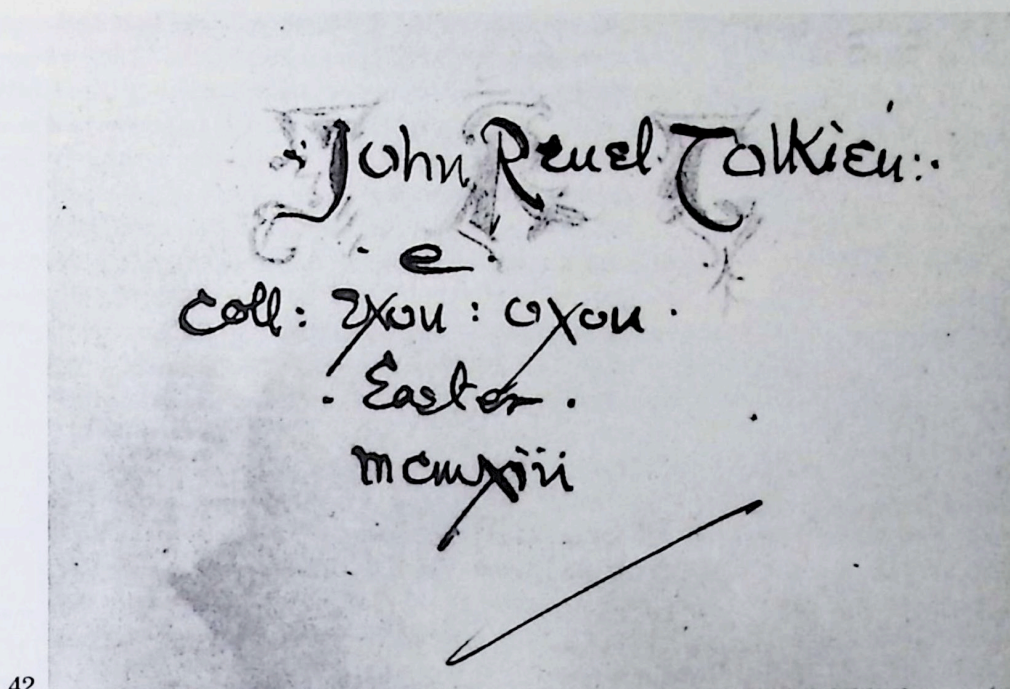 · John Reuel Tolkien:·
· e ·
Coll: Exon: Oxon ·
· Easter ·
mcmxiii
42